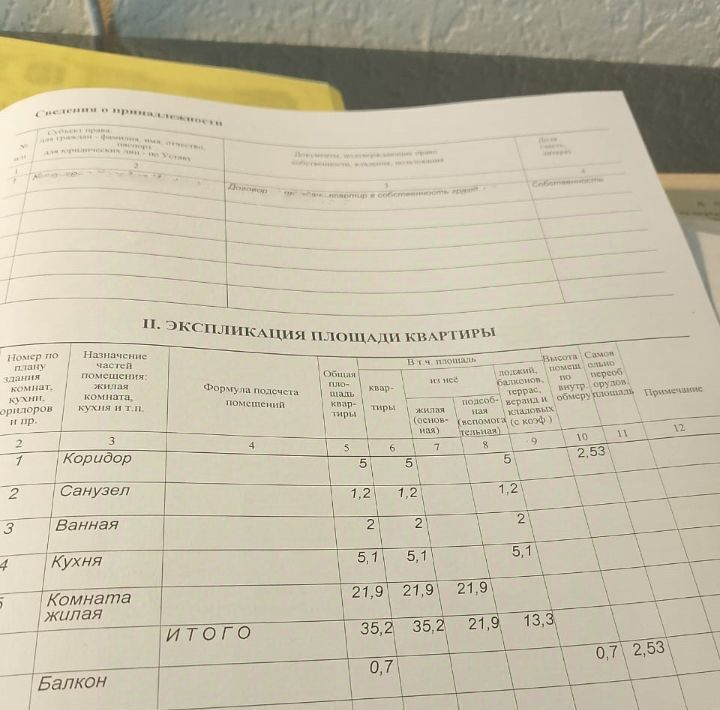 Сведения о принадлежности
№ п/п
Субъект права:
для граждан - фамилия, имя, отчество,
паспорт
для юридических лиц - по Уставу
Документы, подтверждающие право
собственности, владения, пользования
Доля
(часть,
литера)
1 2 3 4
1 Договор квартир в собственность Собственность
II. ЭКСПЛИКАЦИЯ ПЛОЩАДИ КВАРТИРЫ
Номер по
плану
здания
комнат,
кухни,
коридоров
и пр.
Назначение
частей
помещения:
жилая
комната,
кухня и т.п.
Формула подсчета
помещений
Общая
пло-
щадь
квар-
тиры
В т.ч. площадь
квар-
тиры
из неё
жилая
(основ-
ная)
подсоб-
ная
(вспомога
тельная)
лоджий,
балконов,
террас,
веранд и
кладовых
(с коэф.)
Высота
помещ.
по
внутр.
обмеру
Самов
ольно
переоб
орудов.
площадь
Примечание
2 3 4 5 6 7 8 9 10 11 12
1 Коридор 5 5 5 2,53
2 Санузел 1,2 1,2 1,2
3 Ванная 2 2 2
4 Кухня 5,1 5,1 5,1
5 Комната 21,9 21,9 21,9
жилая
ИТОГО 35,2 35,2 21,9 13,3
Балкон 0,7 0,7 2,53